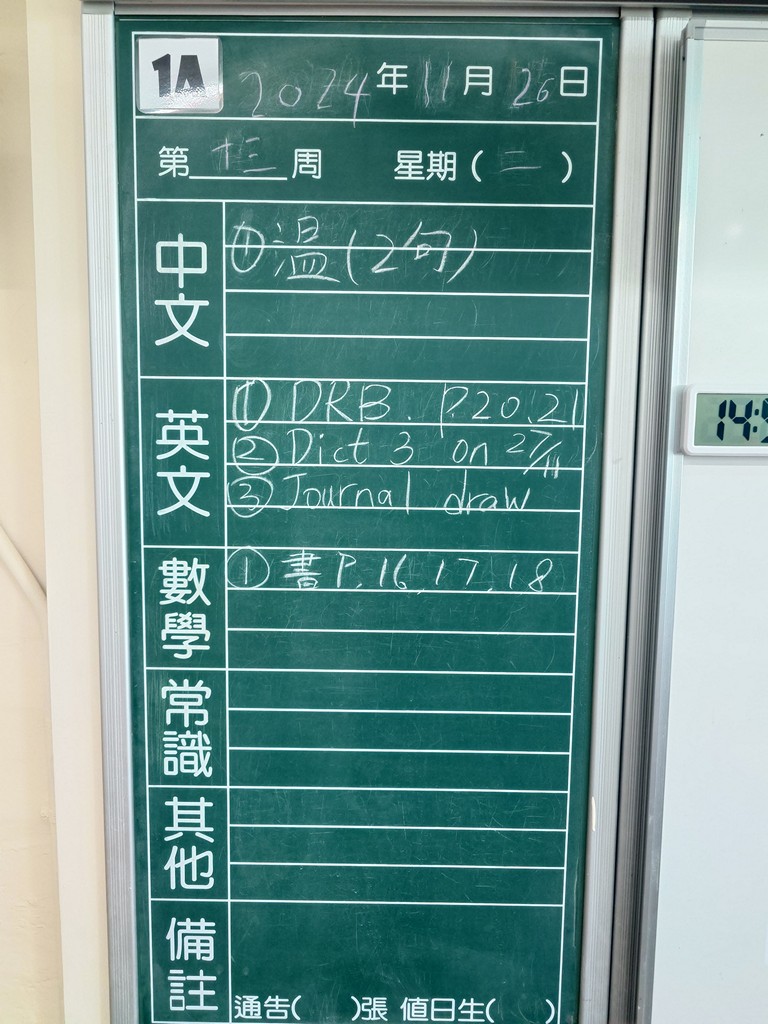 1A 2024年11月26日
第十三周 星期(二)
中文
①溫(2句)
英文
① DRB. P.20,21
② Dict 3 on 27/11
③ Journal draw
數學
① 書 P.16,17,18
常識
其他
備註
通告( )張 值日生( )
14:5